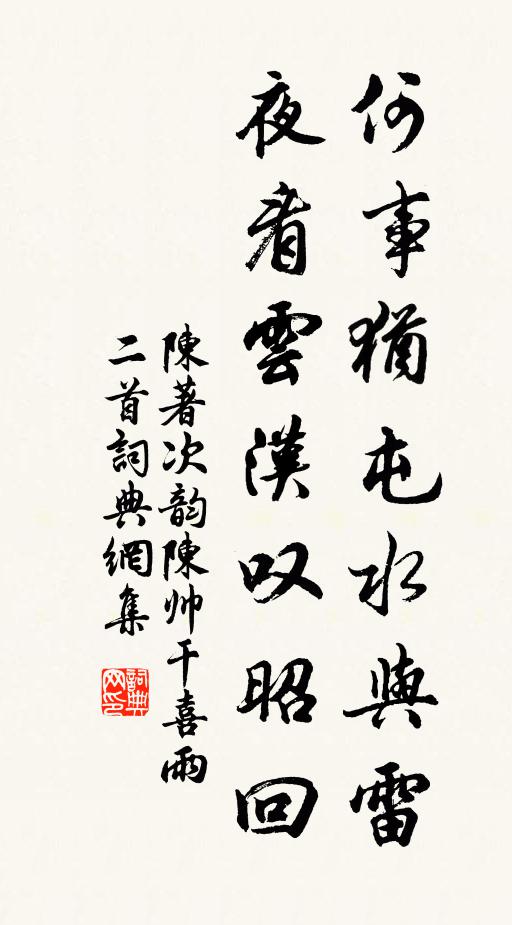 何事猶屯水與雷
夜看雲漢叹昭回
陳著次韵陳帅干喜雨
二首詞典網集
詞典
网印